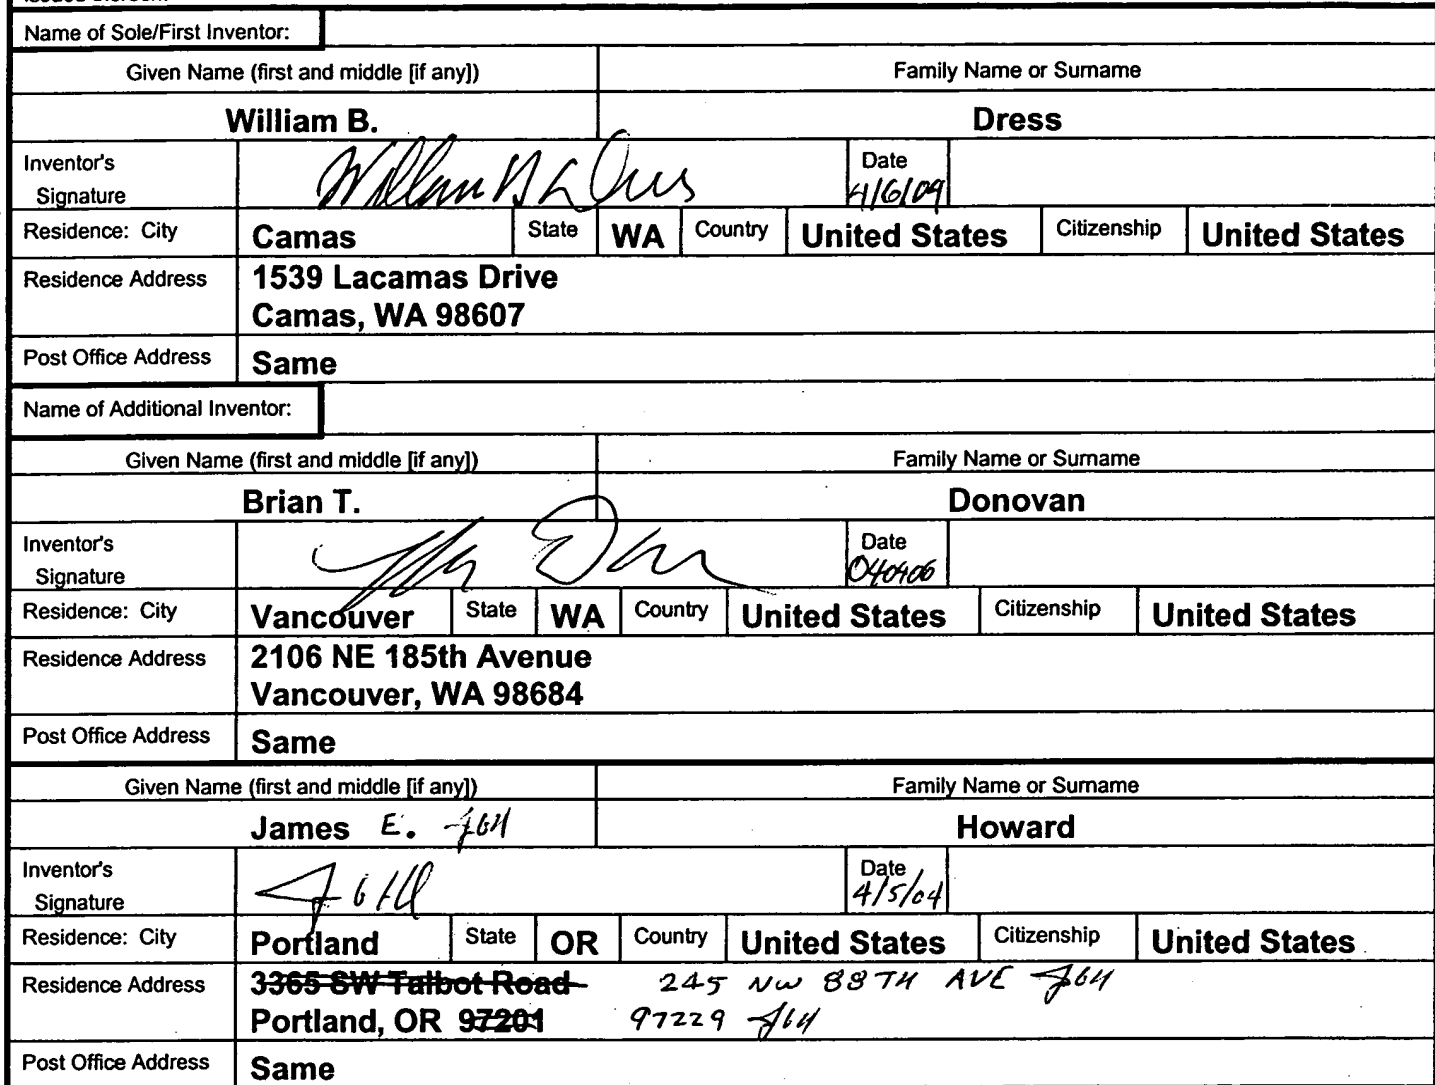 Name of Sole/First Inventor:
Given Name (first and middle [if any]) Family Name or Surname
William B. Dress
Inventor's Signature Date 4/6/04
Residence: City Camas State WA Country United States Citizenship United States
Residence Address 1539 Lacamas Drive
Camas, WA 98607
Post Office Address Same
Name of Additional Inventor:
Given Name (first and middle [if any]) Family Name or Surname
Brian T. Donovan
Inventor's Signature Date 040406
Residence: City Vancouver State WA Country United States Citizenship United States
Residence Address 2106 NE 185th Avenue
Vancouver, WA 98684
Post Office Address Same
Given Name (first and middle [if any]) Family Name or Surname
James E. JEH Howard
Inventor's Signature Date 4/5/04
Residence: City Portland State OR Country United States Citizenship United States
Residence Address 3365 SW Talbot Road 245 NW 88TH AVE JEH
Portland, OR 97201 97229 JEH
Post Office Address Same